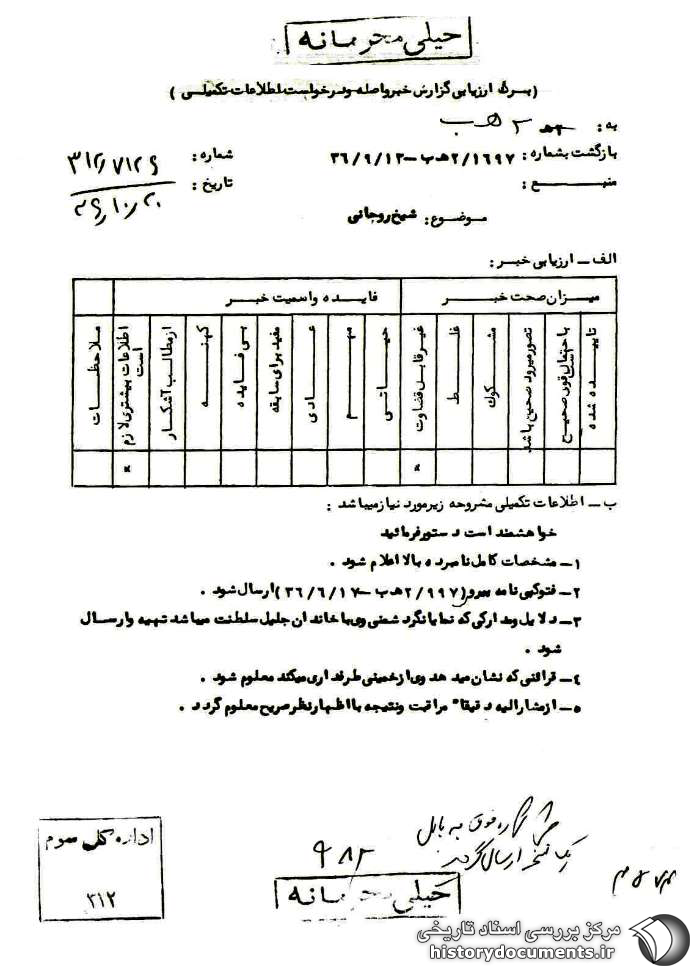 خیلی محرمانه
(برگ ارزیابی گزارش خبر واصله و درخواست اطلاعات تکمیلی)
به: ۲ هـ ب
شماره: ۳۱۲/۷۱۲۶
بازگشت بشماره: ۲/۱۶۹۷هـ ب -۳۶/۹/۱۳
تاریخ:
منبع:
موضوع: شیخ روحانی
الف ــ ارزیابی خبر:
میزان صحت خبر
فایده و اهمیت خبر
تایید شده
با احتمال قوی صحیح است
تصور میرود صحیح باشد
مشکوك
غلط
غیر قابل قضاوت
حیاتی
مهم
عادی
مفید برای سابقه
بی فایده
کهنه
از مطالب آشکار
اطلاعات بیشتری لازم است
ملاحظات
x
x
ب ــ اطلاعات تکمیلی مشروحه زیر مورد نیاز میباشد:
خواهشمند است دستور فرمائید
۱ــ مشخصات کامل نامبرده بالا اعلام شود.
۲ــ فتوکپی نامه پیرو (۲/۹۹۷هـ ب -۳۶/۶/۱۷) ارسال شود.
۳ــ دلایل و مدارکی که نمایانگر دشمنی وی با خاندان جلیل سلطنت میباشد تهیه و ارسال
شود.
٤ــ قرائنی که نشان میدهد وی از خمینی طرفداری میکند معلوم شود.
۵ــ از مشارالیه دقیقاً مراقبت و نتیجه با اظهار نظر صریح معلوم گردد.
شماره فوق به بابل
یک نسخه ارسال گردید
اداره کل سوم
۳۱۲
۹۸۲
خیلی محرمانه
مرکز بررسی اسناد تاریخی
historydocuments.ir